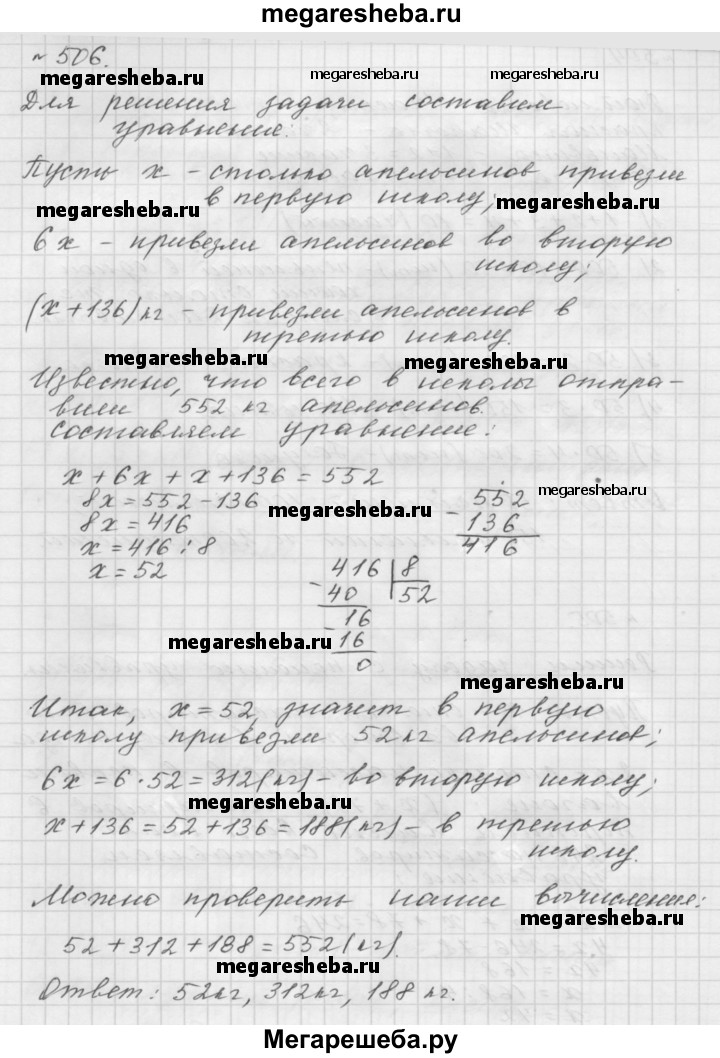 megaresheba.ru
№ 506.
megaresheba.ru megaresheba.ru megaresheba.ru
Для решения задачи составим
уравнение:
Пусть х – столько апельсинов привезли
в первую школу;
megaresheba.ru megaresheba.ru
6х – привезли апельсинов во вторую
школу;
(х + 136) кг – привезли апельсинов в
третью школу.
megaresheba.ru megaresheba.ru
Известно, что всего в школы отпра-
вили 552 кг апельсинов.
Составляем уравнение:
х + 6х + х + 136 = 552
8х = 552 – 136
8х = 416
х = 416 : 8
х = 52
megaresheba.ru
megaresheba.ru
– 552
136
416
– 416 | 8
40 52
– 16
16
0
megaresheba.ru
megaresheba.ru
Итак, х = 52, значит в первую
школу привезли 52 кг апельсинов;
6х = 6 · 52 = 312 (кг) – во вторую школу;
megaresheba.ru
х + 136 = 52 + 136 = 188 (кг) – в третью
школу.
Можно проверить наши вычисления:
megaresheba.ru
52 + 312 + 188 = 552 (кг).
megaresheba.ru
Ответ: 52 кг, 312 кг, 188 кг.
Мегарешеба.ру